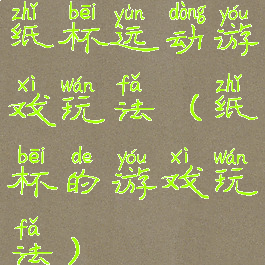 zhǐ bēi yùn dòng yóu
纸杯运动游
xì wán fǎ zhǐ
戏玩法（纸
bēi de yóu xì wán
杯的游戏玩
fǎ
法）